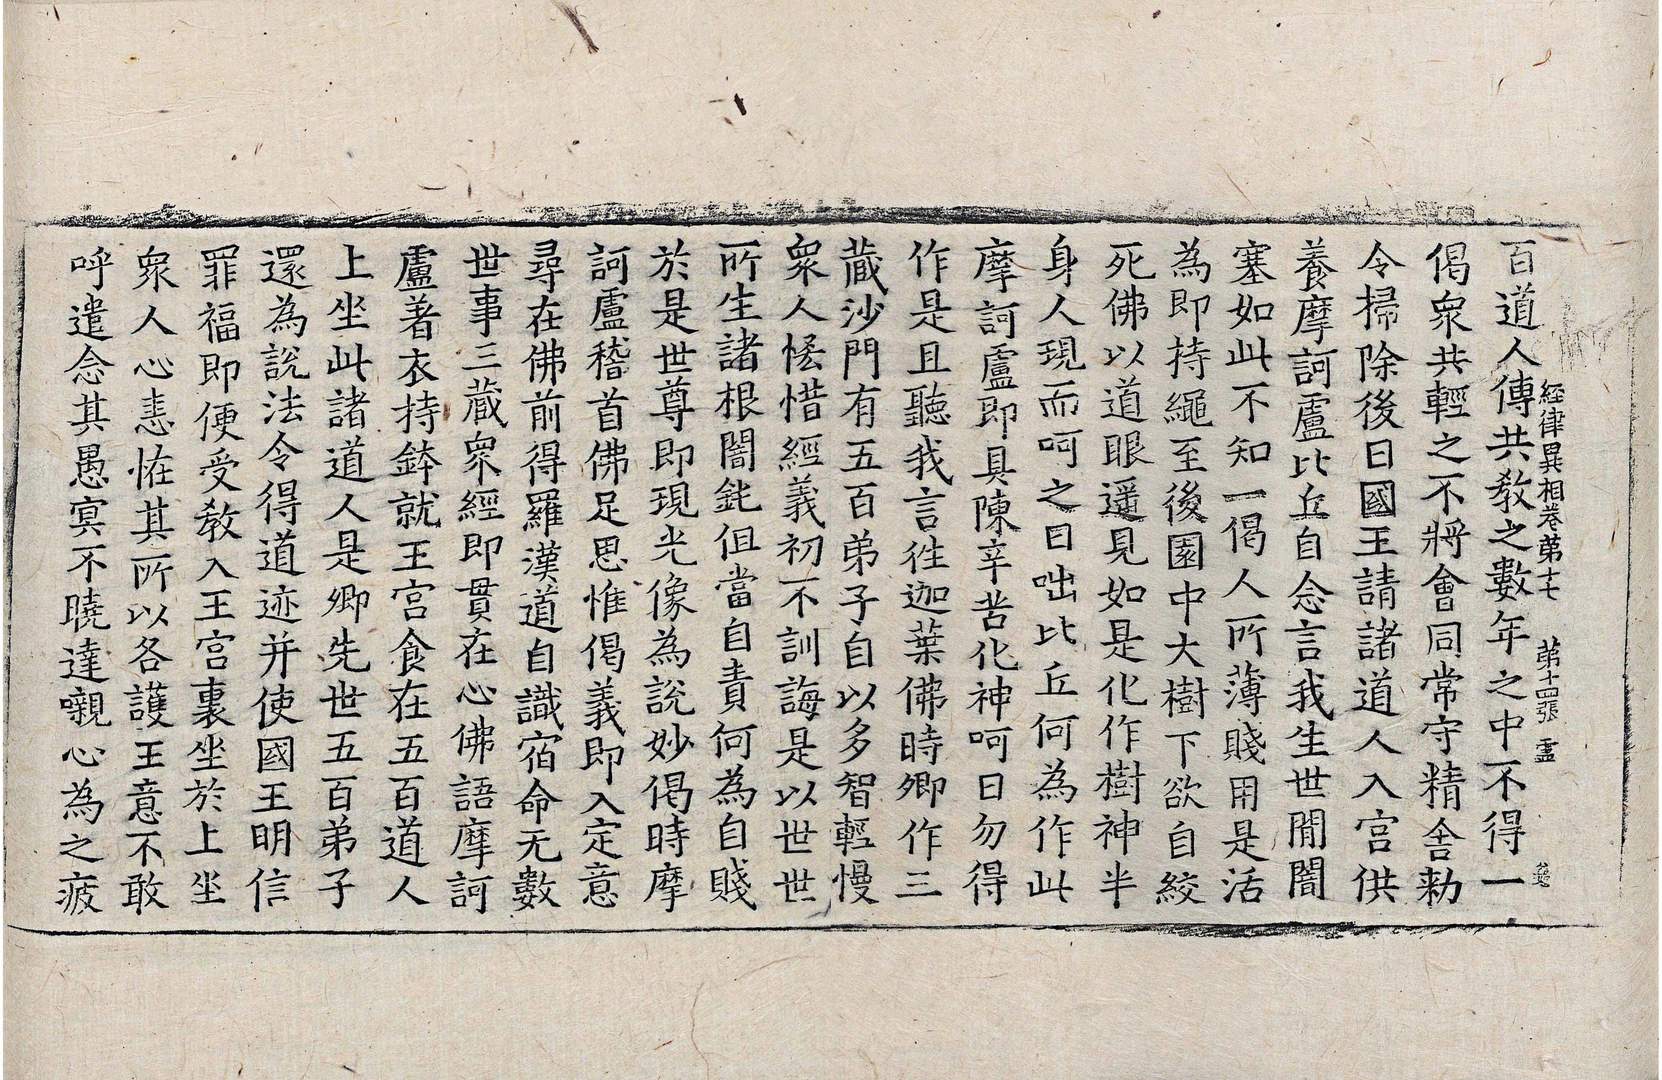 經律異相卷第十七 第十四張 靈
百道人傳共教之數年之中不得一
偈衆共輕之不將會同常守精舍勑
令掃除後日國王請諸道人入宮供
養摩訶盧比丘自念言我生世閒闇
塞如此不知一偈人所薄賤用是活
為即持繩至後園中大樹下欲自絞
死佛以道眼遥見如是化作樹神半
身人現而呵之曰咄比丘何為作此
摩訶盧即具陳辛苦化神呵曰勿得
作是且聽我言徃迦葉佛時卿作三
藏沙門有五百弟子自以多智輕慢
衆人恡惜經義初不訓誨是以世世
所生諸根闇鈍但當自責何為自賤
於是世尊即現光像為說妙偈時摩
訶盧稽首佛足思惟偈義即入定意
尋在佛前得羅漢道自識宿命无數
世事三藏衆經即貫在心佛語摩訶
盧著衣持鉢就王宮食在五百道人
上坐此諸道人是卿先世五百弟子
還為說法令得道迹并使國王明信
罪福即便受教入王宮裏坐於上坐
衆人心恚恠其所以各護王意不敢
呼遣念其愚寘不曉達嚫心為之疲